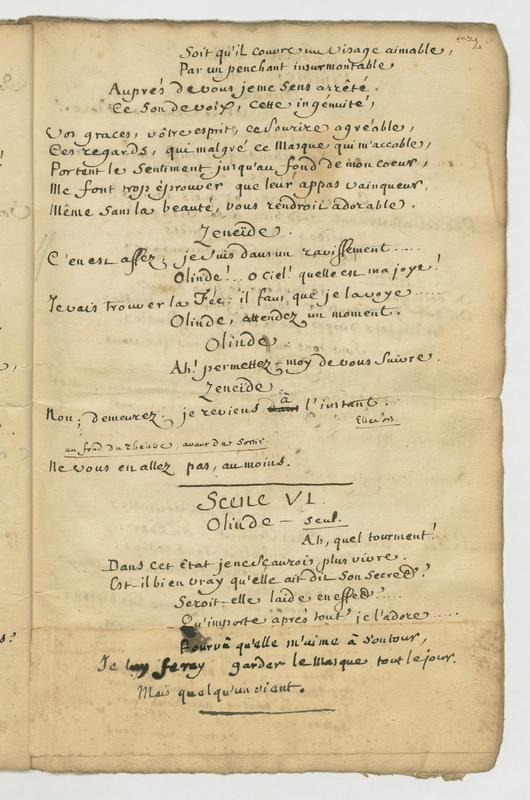 Soit qu'il couvre un visage aimable,
Par un penchant insurmontable
Auprés de vous je me sens arrêté.
Ce son de voix, cette ingénuité,
Vos graces, vôtre esprit, ce sourire agréable,
Ces regards, qui malgré ce Masque qui m'accable,
Portent le Sentiment jusqu'au fond de mon coeur,
Me font trop éprouver que leur appas vainqueur,
Même sans la beauté, vous rendroit adorable.
Zeneïde.
C'en est assez; je suis dans un ravissement.....
Olinde!.. o Ciel! quelle est ma joye!
Je vais trouver la Fée; il faut que je la voye.....
Olinde, attendez un moment.
Olinde.
Ah! permettez-moy de vous suivre.
Zeneïde.
Non; demeurez; je reviens à l'instant.
Elle sort.
au fond du theatre, avant de sortir.
Ne vous en allez pas, au moins.
Scene VI.
Olinde - seul.
Ah, quel tourment!
Dans cet état je ne sçaurois plus vivre.
Est-il bien vray qu'elle ait dit son secret?
Seroit-elle laide en effet?....
Qu'importe aprés tout? je l'adore.....
Pourvû qu'elle m'aime à son tour,
Je luy feray garder le Masque tout le jour.
Mais quelqu'un vient.